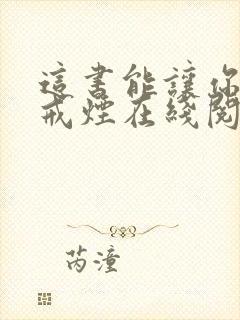 這書能讓你
戒煙在綫閱
芮潼